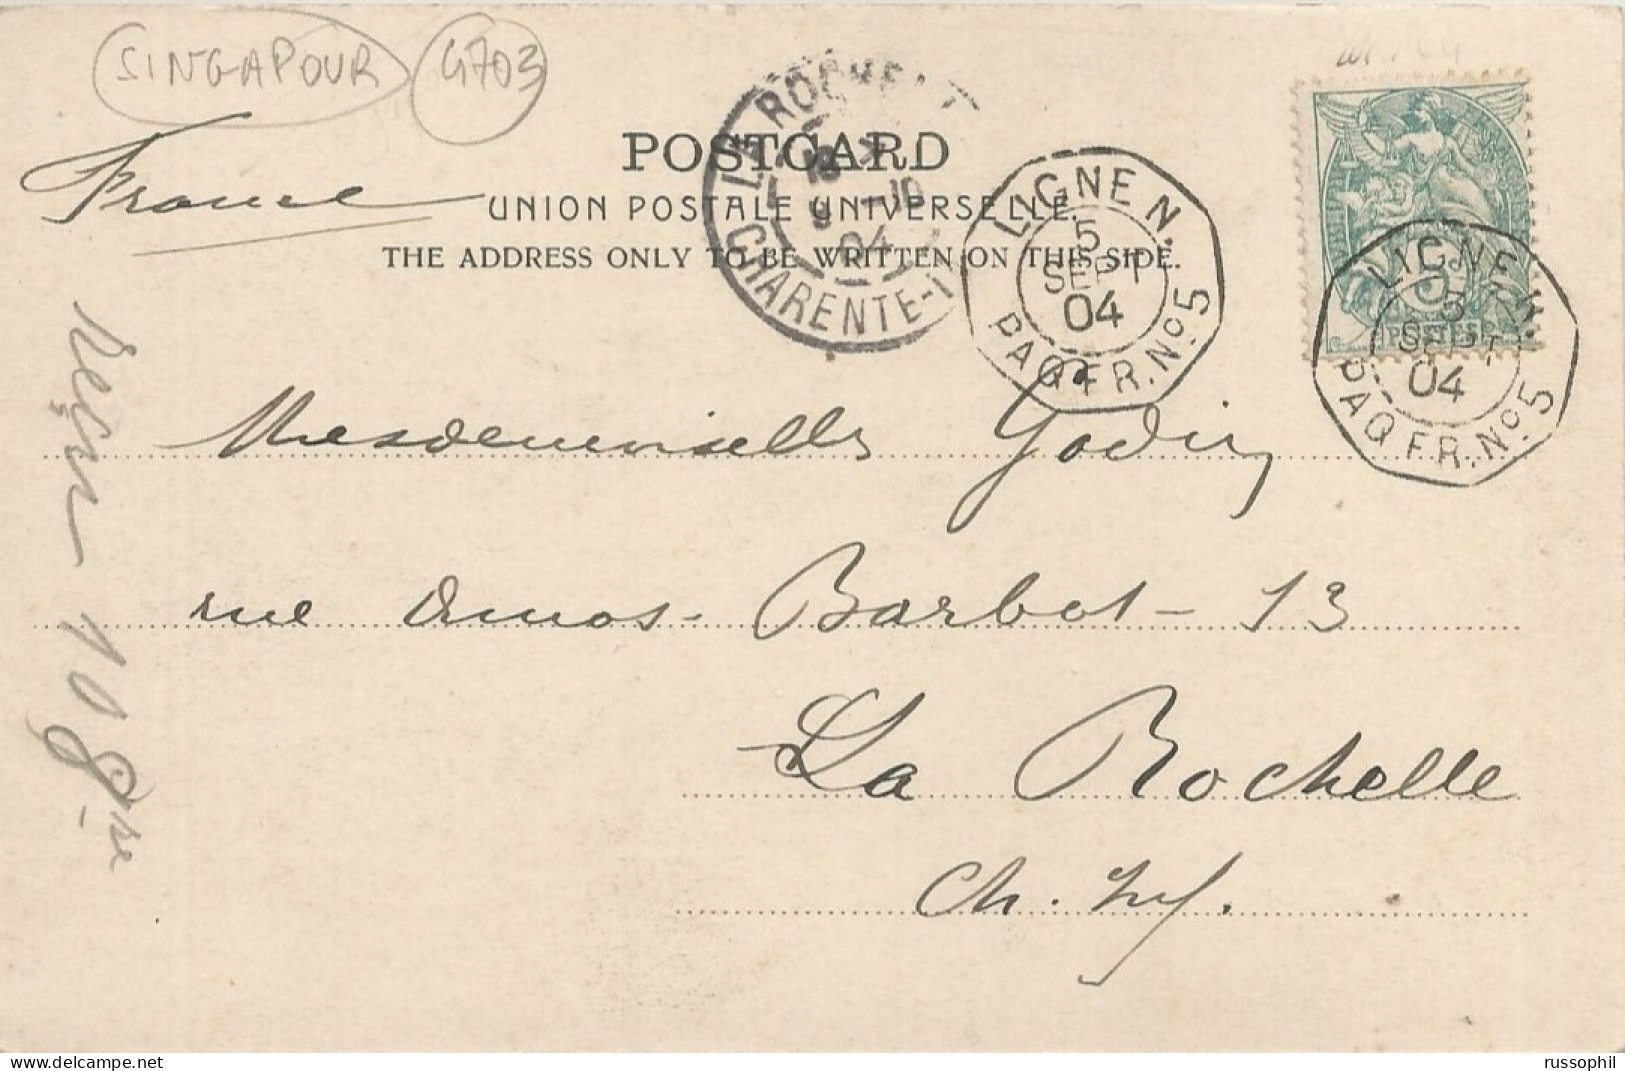 SINGAPOUR 4703
France
POSTCARD
UNION POSTALE UNIVERSELLE.
THE ADDRESS ONLY TO BE WRITTEN ON THIS SIDE.
LA ROCHELLE
9 -10
04
CHARENTE-I
LIGNE N.
5
SEPT
04
PAQ. FR. No 5
5
POSTES
LIGNE N.
5
SEPT
04
PAQ. FR. No 5
Mesdemoiselles Godin
rue Amos-Barbot-13
La Rochelle
Ch. Inf.
reçu 10 8bre
www.delcampe.net
russophil